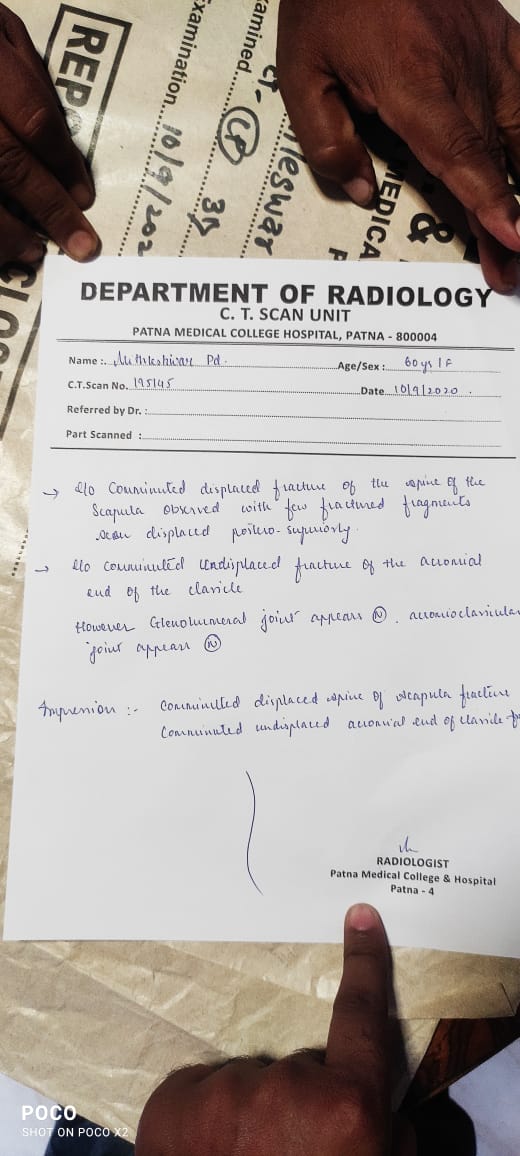 REPO
xamination.. 10/9/202
xamined..
CT-
35
lleswar
MEDICA
&
P
CLOS
DEPARTMENT OF RADIOLOGY
C. T. SCAN UNIT
PATNA MEDICAL COLLEGE HOSPITAL, PATNA - 800004
Name :. Mithleshwar Pd. Age/Sex : 60ys / F
C.T.Scan No. 195145 Date 10/9/2020 .
Referred by Dr. :
Part Scanned :
→ E/o Comminuted displaced fracture of the spine of the
Scapula observed with few fractured fragments
seen displaced postero-superiorly.
→ E/o comminuted undisplaced fracture of the acromial
end of the clavicle
However Glenohumeral joint appears Ⓝ . acromioclavicular
joint appears Ⓝ
Impression :- Comminuted displaced spine of scapula fracture
Comminuted undisplaced acromial end of clavicle f
RADIOLOGIST
Patna Medical College & Hospital
Patna - 4
POCO
SHOT ON POCO X2